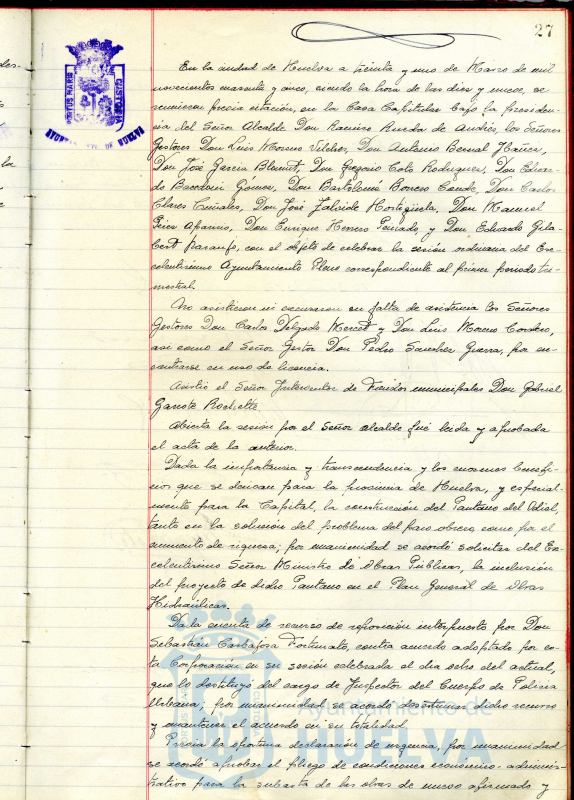 27
PORTUS MARIS CUSTODIA
AYUNTAMIENTO DE HUELVA
En la ciudad de Huelva a treinta y uno de Marzo de mil
novecientos cuarenta y cinco, siendo la hora de las diez y nueve, se
reunieron previa citación, en la Casa Capitular bajo la presiden-
cia del Señor Alcalde Don Ramiro Rueda de Andrés, los Señores
Gestores Don Luis Moreno Vilches, Don Antonio Bernal Ibáñez,
Don José Garcia Don Gregorio Coto Rodriguez, Don Eduar-
do Bocedoni Gómez, Don Bartolomé Borrero Conde, Don Carlos
Clares Don José Hostigüela, Don Manuel
Pérez Aparicio, Don Enrique Herrero Peinado, y Don Eduardo Gila-
bert Naranjo, con el objeto de celebrar la sesión ordinaria del Ex-
celentisimo Ayuntamiento Pleno correspondiente al primer periodo tri-
mestral.
No asistieron ni excusaron su falta de asistencia los Señores
Gestores Don Carlos Delgado Mercet y Don Luis Moreno Cordero,
asi como el Señor Gestor Don Pedro Sanchez Guerra, por en-
contrarse en uso de licencia.
Asistió el Señor Interventor de Fondos municipales Don Gabriel
Ganote Rochette.
Abierta la sesión por el Señor alcalde fué leida y aprobada
el acta de la anterior.
Dada la importancia y transcendencia y los enormes benefi-
cios que se derivan para la provincia de Huelva, y especial-
mente para la Capital, la construcción del Pantano del Odiel,
tanto en la solución del problema del paro obrero, como por el
aumento de riqueza; por unanimidad se acordó solicitar del Ex-
celentisimo Señor Ministro de Obras Públicas, la inclusión
del proyecto de dicho Pantano en el Plan General de Obras
Hidráulicas.
Dada cuenta de recurso de reposición interpuesto por Don
Sebastián Carbajosa Fortunato, contra acuerdo adoptado por es-
ta Corporación en su sesión celebrada el dia ocho del actual,
que lo destituyó del cargo de Inspector del Cuerpo de Policia
Urbana; por unanimidad se acordó desestimar dicho recurso
y mantener el acuerdo en su totalidad.
Previa la oportuna declaración de urgencia, por unanimidad
se acordó aprobar el pliego de condiciones económico-adminis-
trativo para la subasta de las obras de nuevo afirmado y
Ayuntamiento de
HUELVA